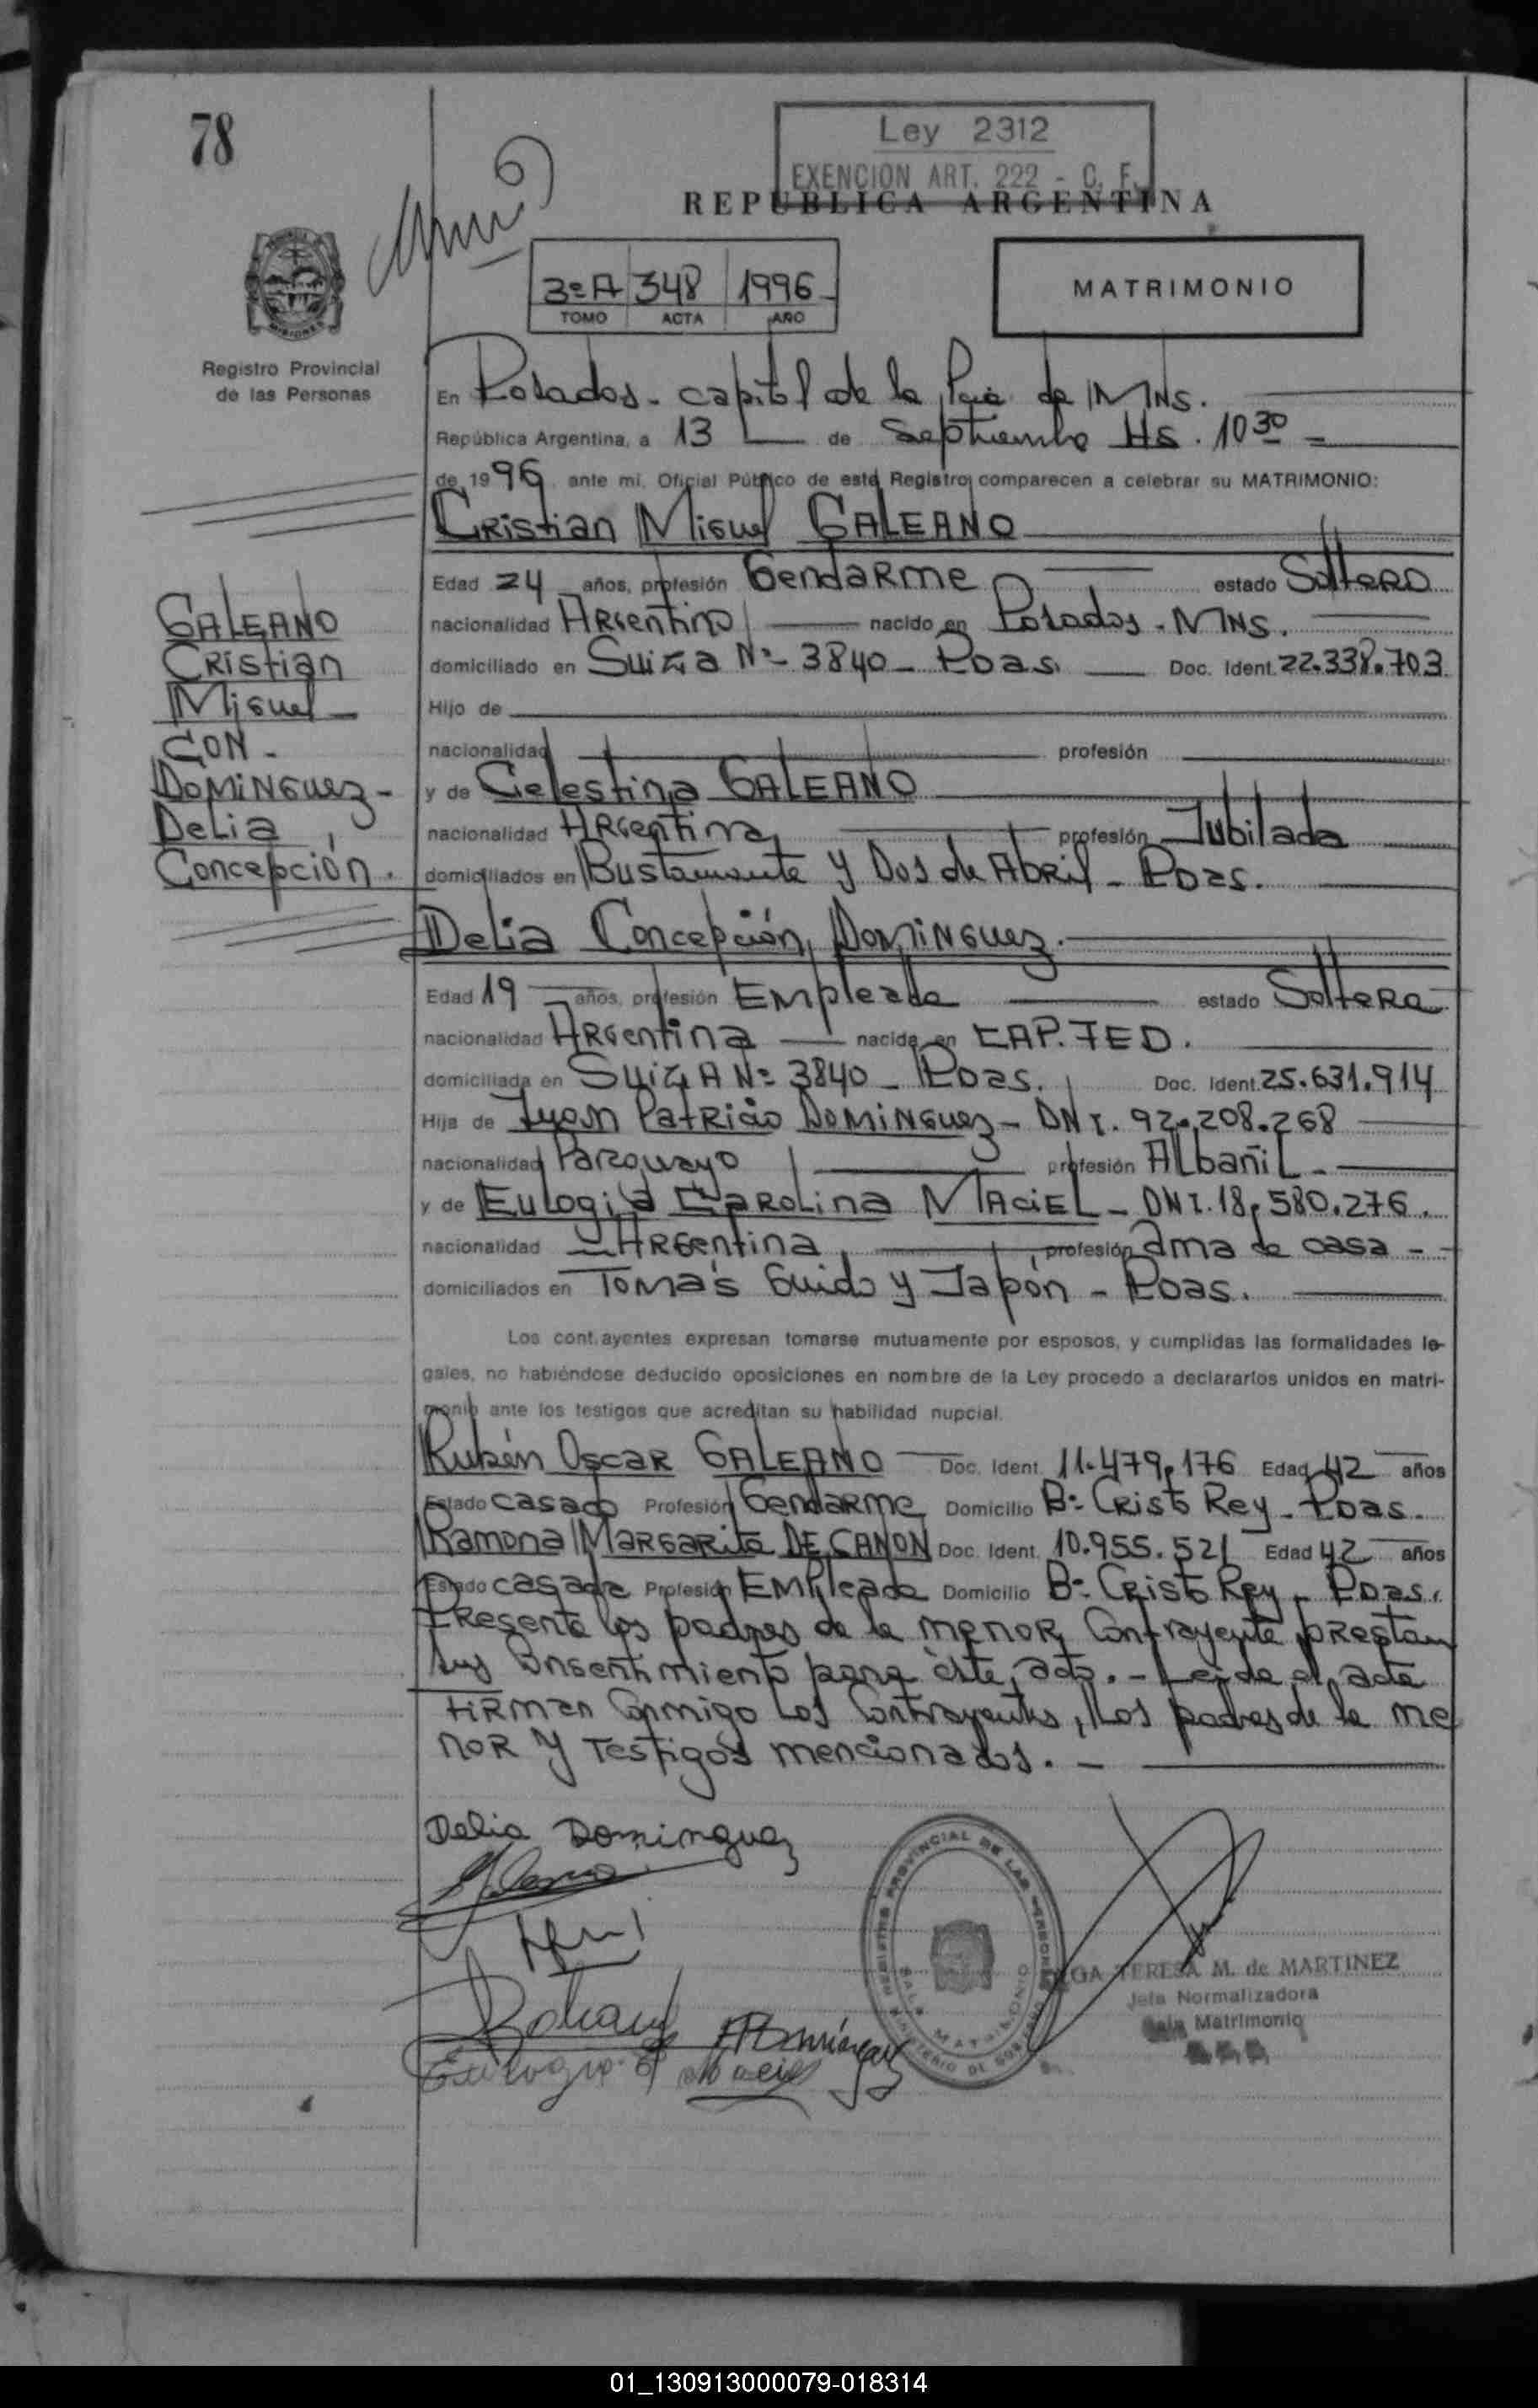 78
Ley 2312
EXENCION ART. 222 - C. F.
REPUBLICA ARGENTINA
3º A 348 1996
TOMO ACTA AÑO
MATRIMONIO
MISIONES
Registro Provincial
de las Personas
En Posadas - capital de la Pcia de MNS.
República Argentina, a 13 de Septiembre Hs. 10 30
de 1996 ante mi, Oficial Público de este Registro, comparecen a celebrar su MATRIMONIO:
Cristian Miguel GALEANO
Edad 24 años, profesión Gendarme estado Soltero
nacionalidad Argentino nacido en Posadas - MNS.
domiciliado en Suiza Nº 3840 - Pdas. Doc. Ident. 22.338.703
Hijo de
nacionalidad profesión
y de Celestina GALEANO
nacionalidad Argentina profesión Jubilada
domiciliados en Bustamante y Dos de Abril - Pdas.
GALEANO
Cristian
Miguel -
CON -
DOMINGUEZ -
Delia
Concepción.
Delia Concepción DOMINGUEZ.
Edad 19 años, profesión Empleada estado Soltera
nacionalidad Argentina nacida en CAP. FED.
domiciliada en SUIZA Nº 3840 - Pdas. Doc. Ident. 25.631.914
Hija de Juan Patricio DOMINGUEZ - DNI. 92.208.268
nacionalidad Paraguayo profesión Albañil -
y de Eulogia Carolina MACIEL - DNI. 18.580.276.
nacionalidad Argentina profesión ama de casa -
domiciliados en Tomás Guido y Japón - Pdas.
Los cont.ayentes expresan tomarse mutuamente por esposos, y cumplidas las formalidades le-
gales, no habiéndose deducido oposiciones en nombre de la Ley procedo a declararlos unidos en matri-
monio ante los testigos que acreditan su habilidad nupcial.
Rubén Oscar GALEANO Doc. Ident. 11.479.176 Edad 42 años
Estado casado Profesión Gendarme Domicilio Bº Cristo Rey - Pdas.
Ramona Margarita DE CANON Doc. Ident. 10.955.521 Edad 42 años
Estado casada Profesión Empleada Domicilio Bº Cristo Rey - Pdas.
Presente los padres de la menor contrayente prestan
sus consentimiento para éste acto. - Leída el acta
firman conmigo los contrayentes, los padres de la me
nor y testigos mencionados. -
Delia Dominguez
REGISTRO PROVINCIAL DE LAS PERSONAS
SALA MATRIMONIO
MINISTERIO DE GOBIERNO
OLGA TERESA M. de MARTINEZ
Jefa Normalizadora
Sala Matrimonio
Eulogia C Maciel
01_130913000079-018314